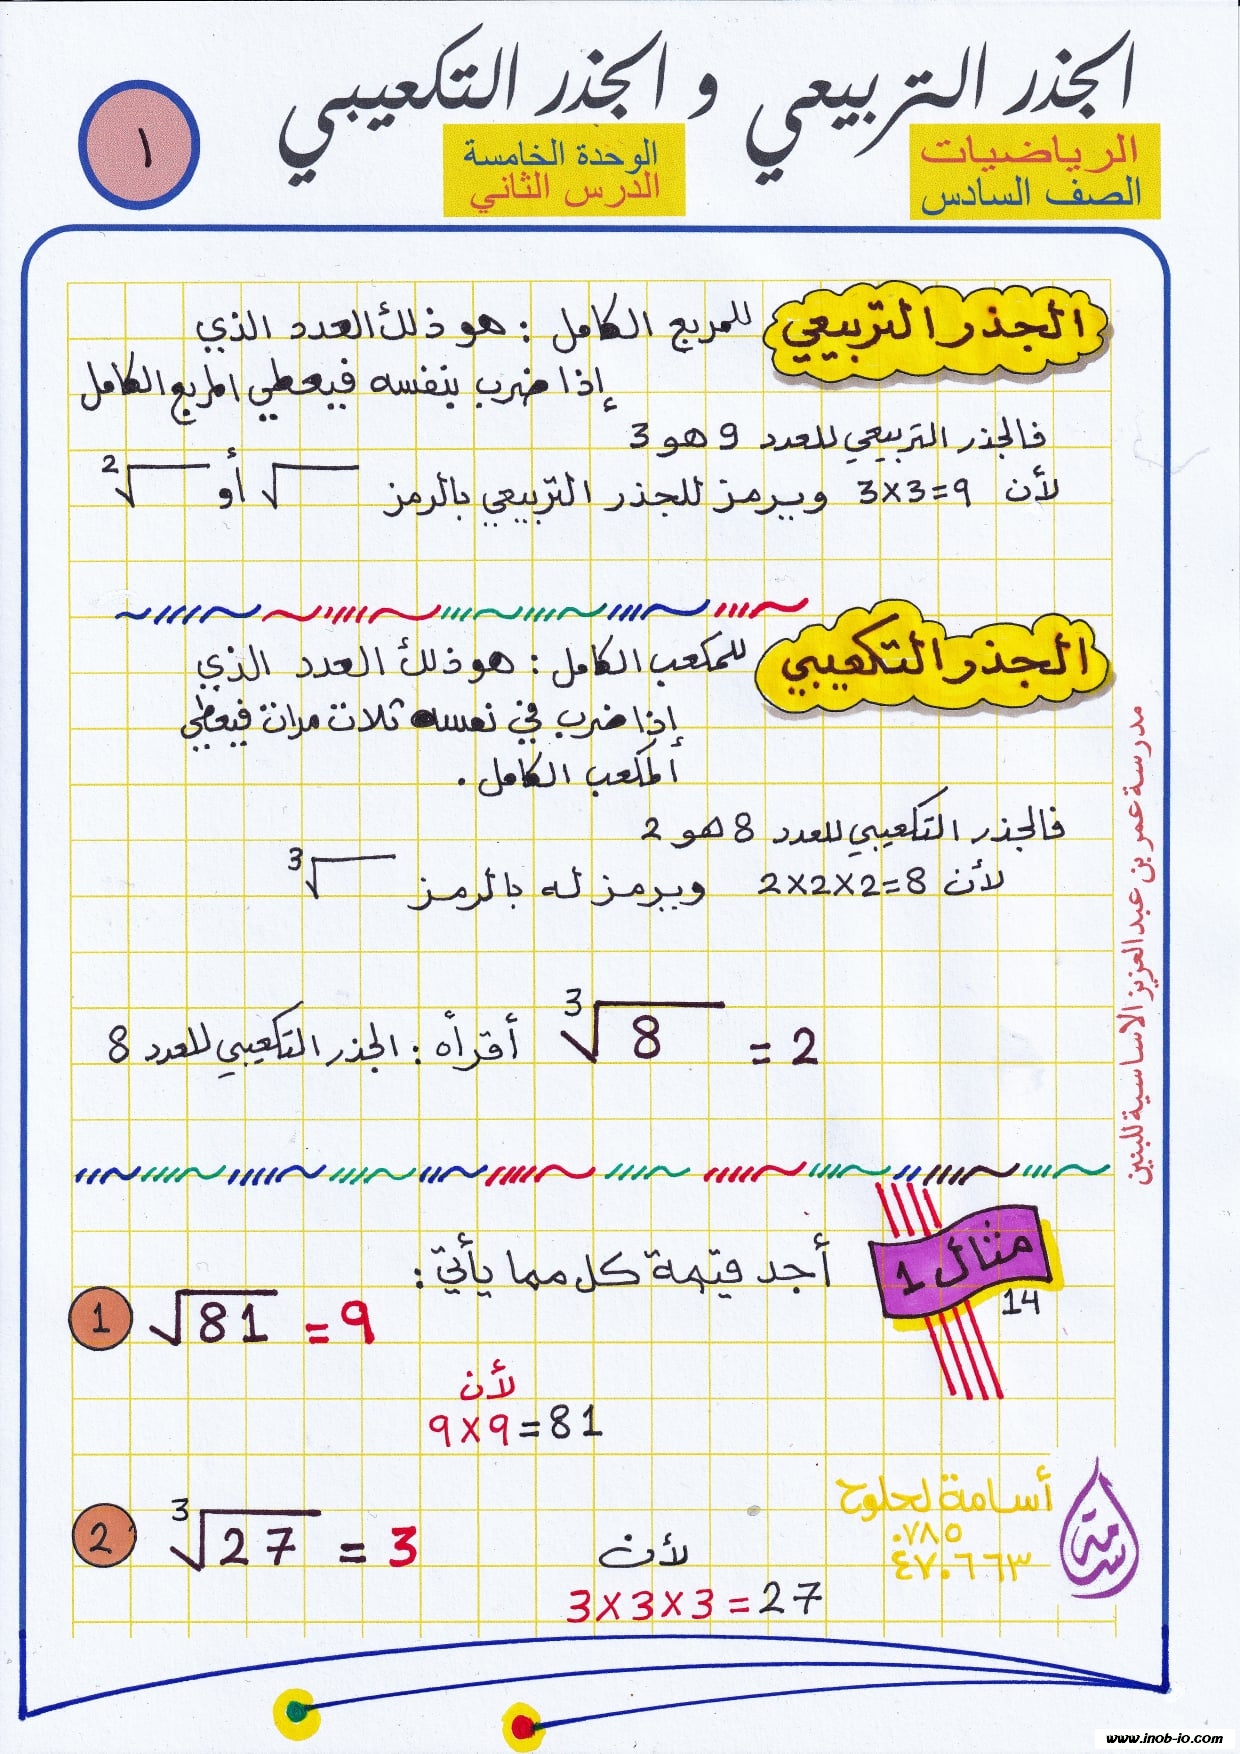 الجذر التربيعي و الجذر التكعيبي
الرياضيات
الصف السادس
الوحدة الخامسة
الدرس الثاني
١
الجذر التربيعي للمربع الكامل : هو ذلك العدد الذي
إذا ضرب بنفسه فيعطي المربع الكامل
فالجذر التربيعي للعدد 9 هو 3
لأن 3×3=9 ويرمز للجذر التربيعي بالرمز √ أو ²√
الجذر التكعيبي للمكعب الكامل : هو ذلك العدد الذي
إذا ضرب في نفسه ثلاث مرات فيعطي
المكعب الكامل .
فالجذر التكعيبي للعدد 8 هو 2
لأن 2×2×2=8 ويرمز له بالرمز ³√
³√8 = 2 أقرأه : الجذر التكعيبي للعدد 8
مثال 1
14
أجد قيمة كل مما يأتي :
1 √81 = 9
لأن
9×9=81
2 ³√27 = 3
لأن
3×3×3=27
أسامة لحلوح
٠٧٨٥
٤٧٠٦٦٣
أسامة
مدرسة عمر بن عبدالعزيز الاساسية للبنين
www.inob-io.com